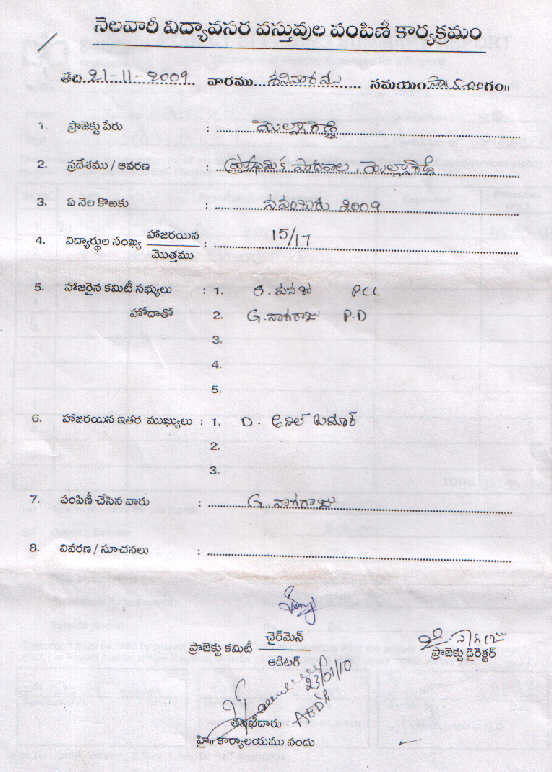 నెలవారీ విద్యావసర వస్తువుల పంపిణీ కార్యక్రమం
తేది 21-11-2009 వారము శనివారము సమయం సా 5.00 గం॥
1. ప్రాజెక్టు పేరు : యెల్లారెడ్డి
2. ప్రదేశము / ఆవరణ : ప్రాథమిక పాఠశాల, యెల్లారెడ్డి
3. ఏ నెల కొఱకు : నవంబరు 2009
4. విద్యార్థుల సంఖ్య హాజరయిన / మొత్తము : 15/17
5. హాజరైన కమిటీ సభ్యులు : 1. PCC
హోదాతో 2. G. నాగరాజు P.D
3.
4.
5.
6. హాజరయిన ఇతర ముఖ్యులు : 1. D. అనిల్ కుమార్
2.
3.
7. పంపిణీ చేసిన వారు : G. నాగరాజు
8. వివరణ / సూచనలు :
ప్రాజెక్టు కమిటీ చైర్‌మెన్ / ఆడిటర్
ప్రాజెక్టు డైరెక్టర్
23/01/10
తనిఖీదారు
హై॥ కార్యాలయము నందు